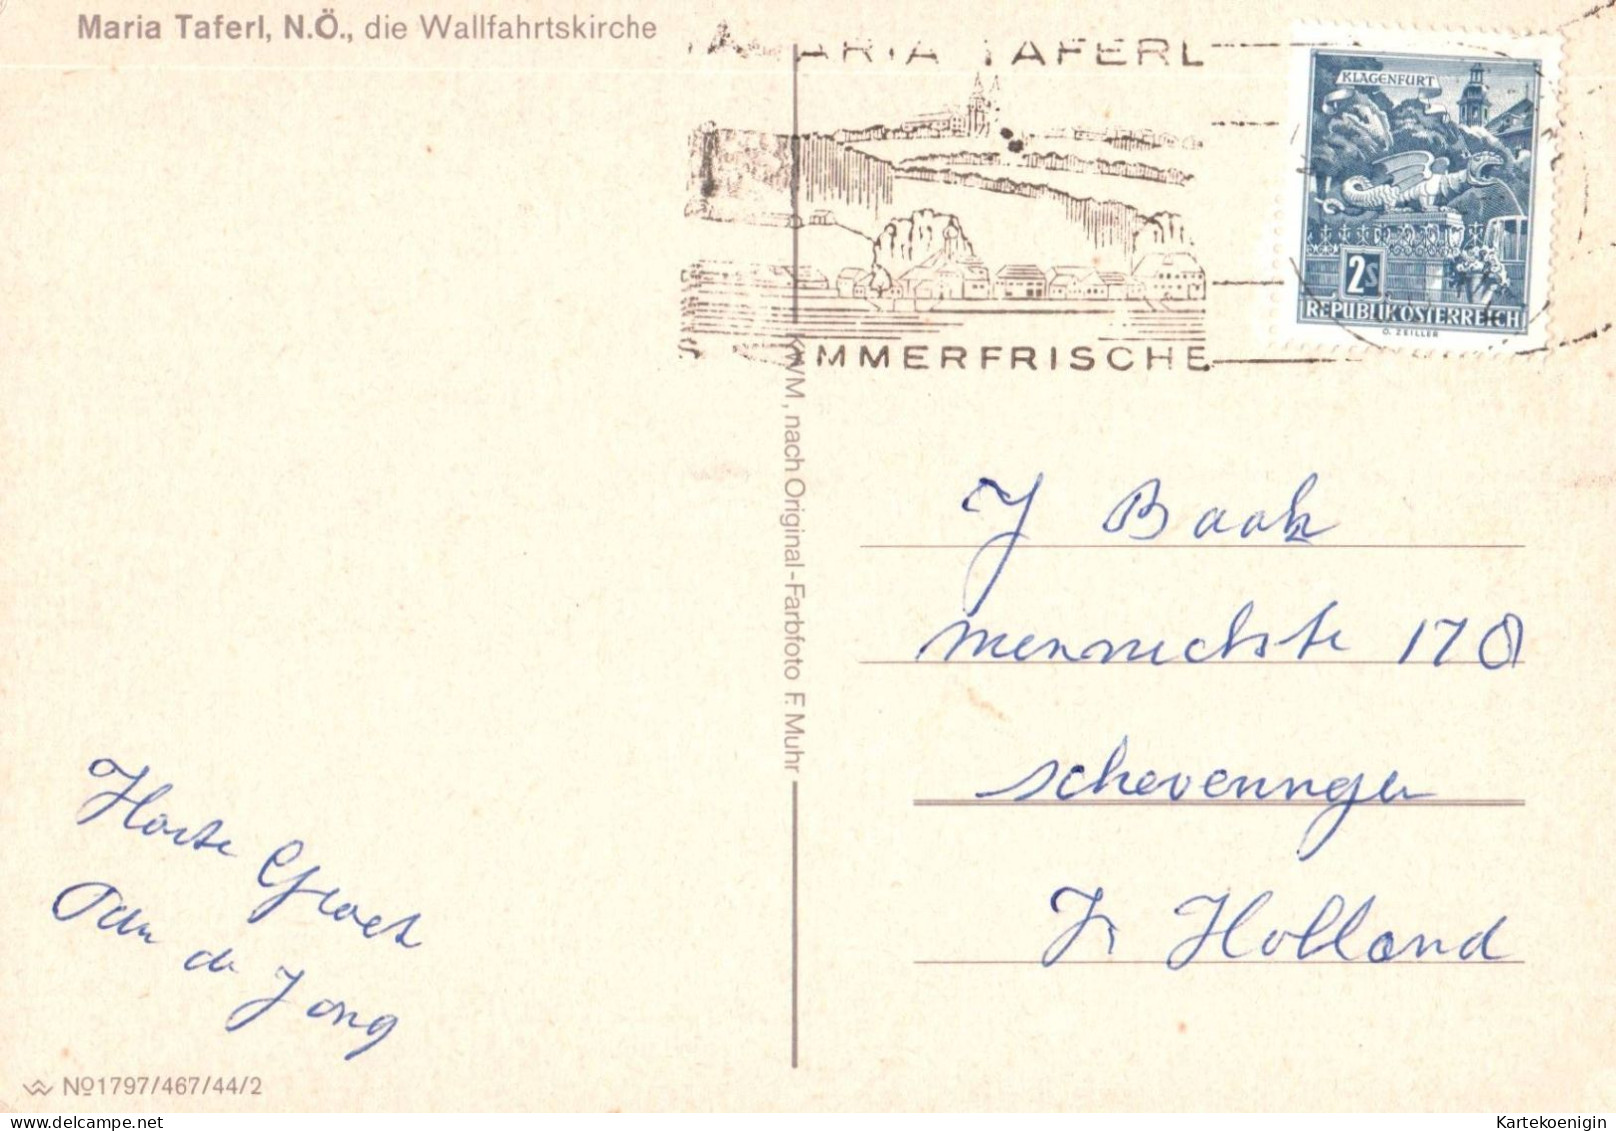 Maria Taferl, N.Ö., die Wallfahrtskirche
MARIA TAFERL
SOMMERFRISCHE
KLAGENFURT
2S
REPUBLIK ÖSTERREICH
O. ZEILLER
KWM, nach Original-Farbfoto F. Muhr
J Baak
170
Scheveningen
Holland
Harte Groet
de Jong
№1797/467/44/2
Kartekoenigin